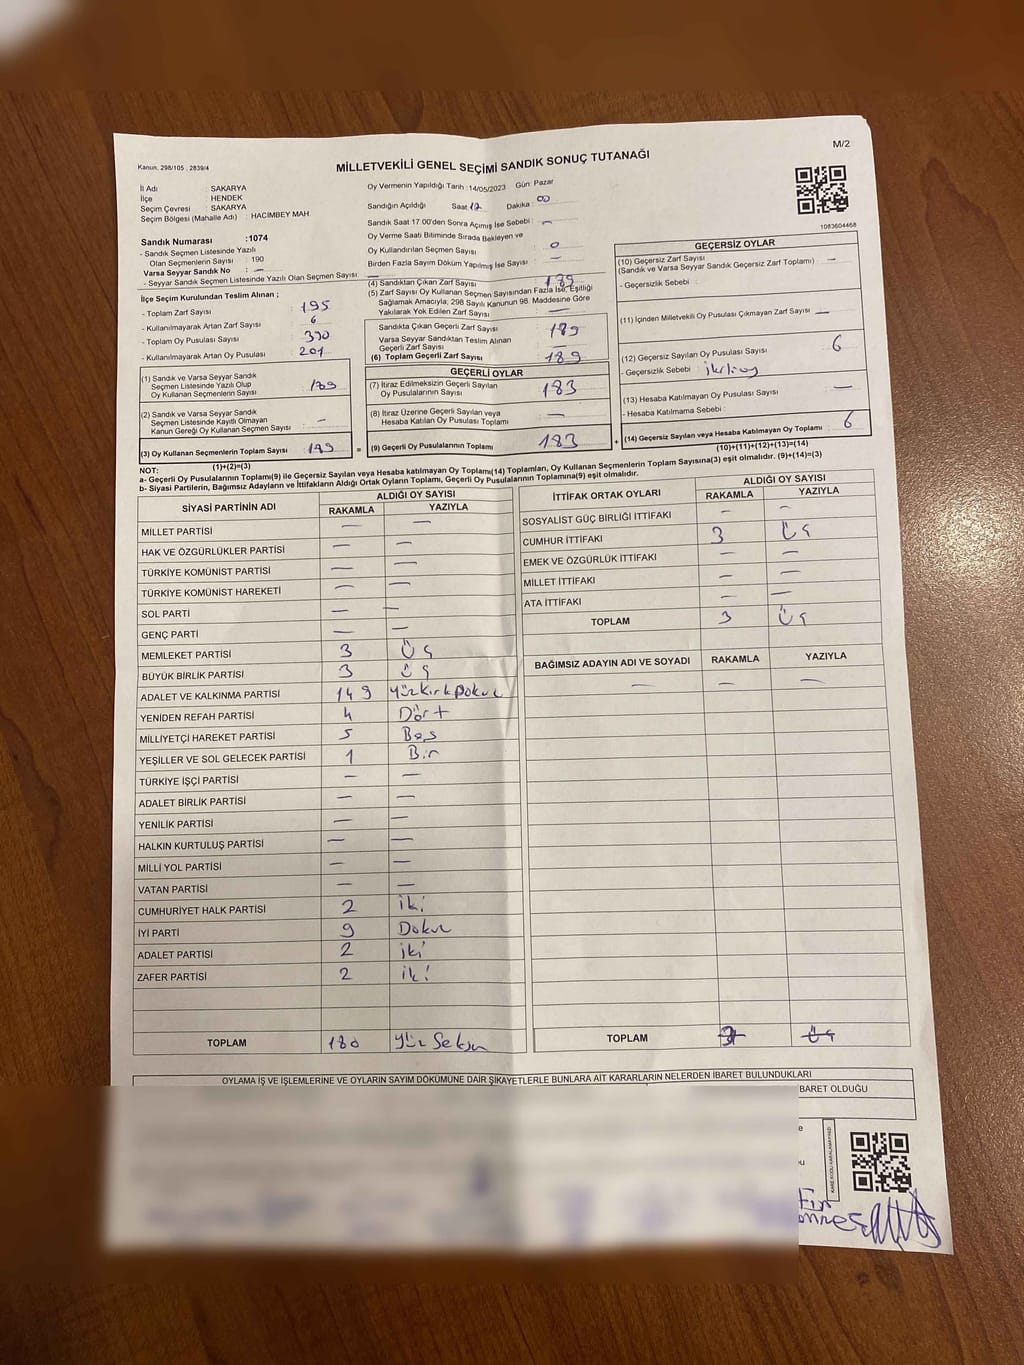 M/2
Kanun, 298/105 , 2839/4
MİLLETVEKİLİ GENEL SEÇİMİ SANDIK SONUÇ TUTANAĞI
İl Adı : SAKARYA
İlçe : HENDEK
Seçim Çevresi : SAKARYA
Seçim Bölgesi (Mahalle Adı) : HACIMBEY MAH
Sandık Numarası :1074
- Sandık Seçmen Listesinde Yazılı
Olan Seçmenlerin Sayısı : 190
Varsa Seyyar Sandık No : —
- Seyyar Sandık Seçmen Listesinde Yazılı Olan Seçmen Sayısı: —
Oy Vermenin Yapıldığı Tarih : 14/05/2023 Gün: Pazar
Sandığın Açıldığı Saat 17 Dakika : 00
Sandık Saat 17.00'den Sonra Açımış İse Sebebi : —
Oy Verme Saati Bitiminde Sırada Bekleyen ve
Oy Kullandırılan Seçmen Sayısı : 0
Birden Fazla Sayım Döküm Yapılmış İse Sayısı : —
1083604468
İlçe Seçim Kurulundan Teslim Alınan ;
- Toplam Zarf Sayısı : 195
- Kullanılmayarak Artan Zarf Sayısı : 6
- Toplam Oy Pusulası Sayısı : 390
- Kullanılmayarak Artan Oy Pusulası : 201
(1) Sandık ve Varsa Seyyar Sandık
Seçmen Listesinde Yazılı Olup
Oy Kullanan Seçmenlerin Sayısı : 189
(2) Sandık ve Varsa Seyyar Sandık
Seçmen Listesinde Kayıtlı Olmayan
Kanun Gereği Oy Kullanan Seçmen Sayısı : —
(3) Oy Kullanan Seçmenlerin Toplam Sayısı : 189
(1)+(2)=(3)
(4) Sandıktan Çıkan Zarf Sayısı : 189
(5) Zarf Sayısı Oy Kullanan Seçmen Sayısından Fazla İse, Eşitliği
Sağlamak Amacıyla; 298 Sayılı Kanunun 98. Maddesine Göre
Yakılarak Yok Edilen Zarf Sayısı : —
Sandıkta Çıkan Geçerli Zarf Sayısı : 189
Varsa Seyyar Sandıktan Teslim Alınan
Geçerli Zarf Sayısı : —
(6) Toplam Geçerli Zarf Sayısı : 189
GEÇERLİ OYLAR
(7) İtiraz Edilmeksizin Geçerli Sayılan
Oy Pusulalarının Sayısı : 183
(8) İtiraz Üzerine Geçerli Sayılan veya
Hesaba Katılan Oy Pusulası Toplamı : —
= (9) Geçerli Oy Pusulalarının Toplamı : 183
GEÇERSİZ OYLAR
(10) Geçersiz Zarf Sayısı : —
(Sandık ve Varsa Seyyar Sandık Geçersiz Zarf Toplamı)
- Geçersizlik Sebebi :
(11) İçinden Milletvekili Oy Pusulası Çıkmayan Zarf Sayısı : —
(12) Geçersiz Sayılan Oy Pusulası Sayısı : 6
- Geçersizlik Sebebi : ikili oy
(13) Hesaba Katılmayan Oy Pusulası Sayısı : —
- Hesaba Katılmama Sebebi :
+ (14) Geçersiz Sayılan veya Hesaba Katılmayan Oy Toplamı : 6
(10)+(11)+(12)+(13)=(14)
NOT:
a- Geçerli Oy Pusulalarının Toplamı(9) ile Geçersiz Sayılan veya Hesaba katılmayan Oy Toplamı(14) Toplamları, Oy Kullanan Seçmenlerin Toplam Sayısına(3) eşit olmalıdır. (9)+(14)=(3)
b- Siyasi Partilerin, Bağımsız Adayların ve İttifakların Aldığı Ortak Oyların Toplamı, Geçerli Oy Pusulalarının Toplamına(9) eşit olmalıdır.
SİYASİ PARTİNİN ADI ALDIĞI OY SAYISI
RAKAMLA YAZIYLA
MİLLET PARTİSİ — —
HAK VE ÖZGÜRLÜKLER PARTİSİ — —
TÜRKİYE KOMÜNİST PARTİSİ — —
TÜRKİYE KOMÜNİST HAREKETİ — —
SOL PARTİ — —
GENÇ PARTİ — —
MEMLEKET PARTİSİ 3 Üç
BÜYÜK BİRLİK PARTİSİ 3 Üç
ADALET VE KALKINMA PARTİSİ 149 YüzkırkDokuz
YENİDEN REFAH PARTİSİ 4 Dört
MİLLİYETÇİ HAREKET PARTİSİ 5 Beş
YEŞİLLER VE SOL GELECEK PARTİSİ 1 Bir
TÜRKİYE İŞÇİ PARTİSİ — —
ADALET BİRLİK PARTİSİ — —
YENİLİK PARTİSİ — —
HALKIN KURTULUŞ PARTİSİ — —
MİLLİ YOL PARTİSİ — —
VATAN PARTİSİ — —
CUMHURİYET HALK PARTİSİ 2 iki
İYİ PARTİ 9 Dokuz
ADALET PARTİSİ 2 iki
ZAFER PARTİSİ 2 iki
TOPLAM 180 Yüz Seksen
İTTİFAK ORTAK OYLARI ALDIĞI OY SAYISI
RAKAMLA YAZIYLA
SOSYALİST GÜÇ BİRLİĞİ İTTİFAKI — —
CUMHUR İTTİFAKI 3 Üç
EMEK VE ÖZGÜRLÜK İTTİFAKI — —
MİLLET İTTİFAKI — —
ATA İTTİFAKI — —
TOPLAM 3 Üç
BAĞIMSIZ ADAYIN ADI VE SOYADI RAKAMLA YAZIYLA
— — —
TOPLAM 3 Üç
OYLAMA İŞ VE İŞLEMLERİNE VE OYLARIN SAYIM DÖKÜMÜNE DAİR ŞİKAYETLERLE BUNLARA AİT KARARLARIN NELERDEN İBARET BULUNDUKLARI
BARET OLDUĞU